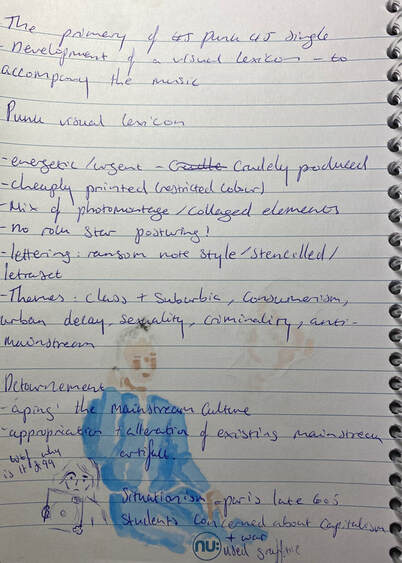 The primary of punk 45 single
- Development of a visual lexicon - to
accompany the music
Punk visual lexicon
- energetic/urgent - Crudely produced
- cheaply printed (restricted colour)
- Mix of photomontage/collaged elements
- no rock star posturing!
- lettering: ransom note style/stencilled/
letraset
- Themes: class + Suburbia, Consumerism,
urban decay, sexuality, criminality, anti-
mainstream
Detournement
- 'aping' the mainstream culture
- appropriation + alteration of existing mainstream
artifact.
why
is it
Situationism - paris late 60s
Students concerned about capitalism
+ war
nu:
used graffitie